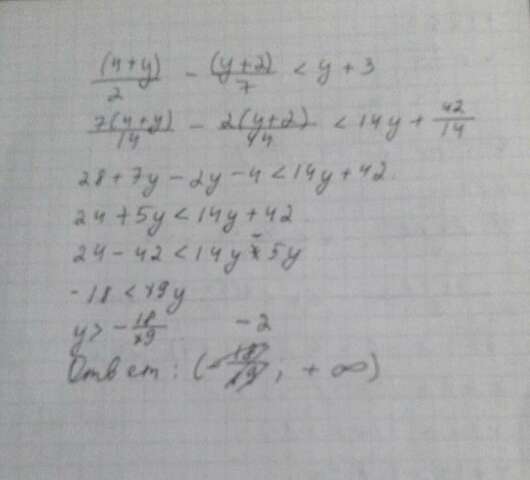 (4+y)/2 - (y+2)/7 < y + 3
7(4+y)/14 - 2(y+2)/14 < 14y + 42/14
28+7y-2y-4<14y+42.
24+5y<14y+42
24-42<14y-5y
-18<9y
y>-18/9 -2
Ответ: ( ; +∞)